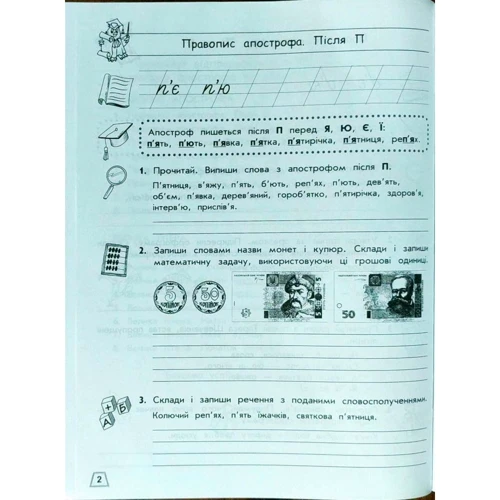 Правопис апострофа. Після П
п'є п'ю
Апостроф пишеться після П перед Я, Ю, Є, Ї:
п'ять, п'ють, п'явка, п'ятка, п'ятирічка, п'ятниця, реп'ях.
1. Прочитай. Випиши слова з апострофом після П.
П'ятниця, в'яжу, п'ять, б'ють, реп'ях, п'ють, дев'ять,
об'єм, п'явка, дерев'яний, гороб'ятко, п'ятирічка, здоров'я,
інтерв'ю, прислів'я.
2. Запиши словами назви монет і купюр. Склади і запиши
математичну задачу, використовуючи ці грошові одиниц
5
50
5
50
3. Склади і запиши речення з поданими словосполученнями.
Колючий реп'ях, п'ять їжачків, святкова п'ятниця.
+
А Б
2